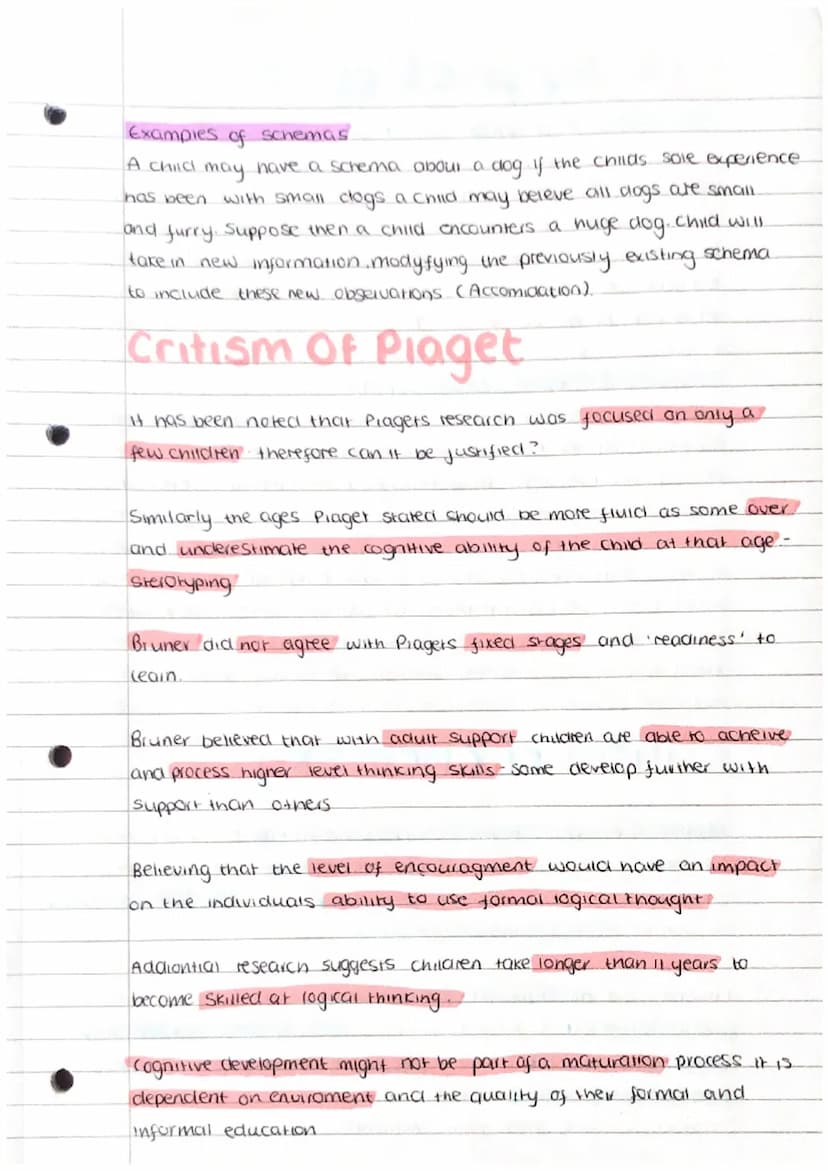 Examples of schemas
A child may have a schema about a dog if the childs sole experience
has been with small dogs a child may beleve all dogs are small
and furry. Suppose then a child encounters a huge dog. Child will
take in new information. modyfying the previously existing schema
to include these new observations (Accomidation).
Critism Of Piaget
It has been noted that Piagets research was focused on only a
few children therefore can it be justified?
Similarly the ages Piaget stated should be more fluid as some over
and underestimate the cognitive ability of the child at that age -
sterotyping
Bruner did not agree with Piagets fixed stages and 'readiness' to
learn.
Bruner believed that with adult support children are able to acheive
and process higher level thinking skills - some develop further with
support than others
Believing that the level of encouragment would have an impact
on the individuals ability to use formal logical thought
Addiontial research suggests children take longer than 11 years to
become skilled at logical thinking.
Cognitive development might not be part of a maturation process it is
dependent on enviroment and the quality of their formal and
informal education